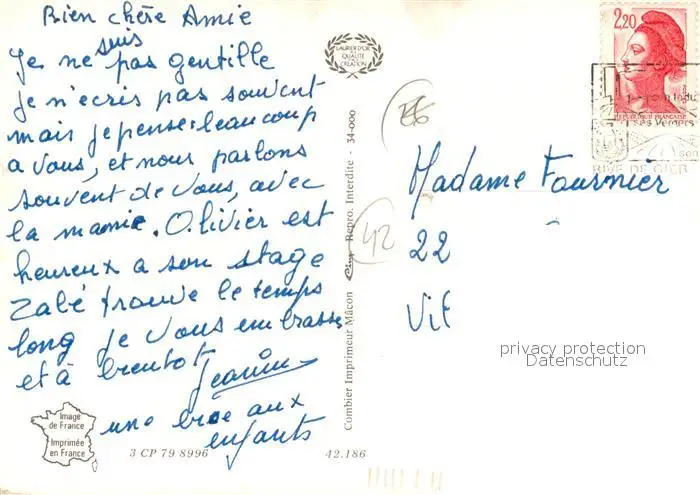 Bien chère Amie
Je ne suis pas gentille
je n'écris pas souvent
mais je pense beaucoup
a vous, et nous parlons
souvent de vous, avec
la mamie. Olivier est
heureux a son stage
Zabé trouve le temps
long je vous embrasse
et à bientot
une bise aux
enfants
LAURIER D'OR
de
QUALITÉ
CRÉATION
Combier Imprimeur Mâcon Repro. Interdite 34-000
Image
de France
Imprimée
en France
3 CP 79 8996
42.186
2,20
REPUBLIQUE FRANCAISE
ses Vergers
RIVE DE GIER
42
Madame Fournier
22
Vil
privacy protection
Datenschutz